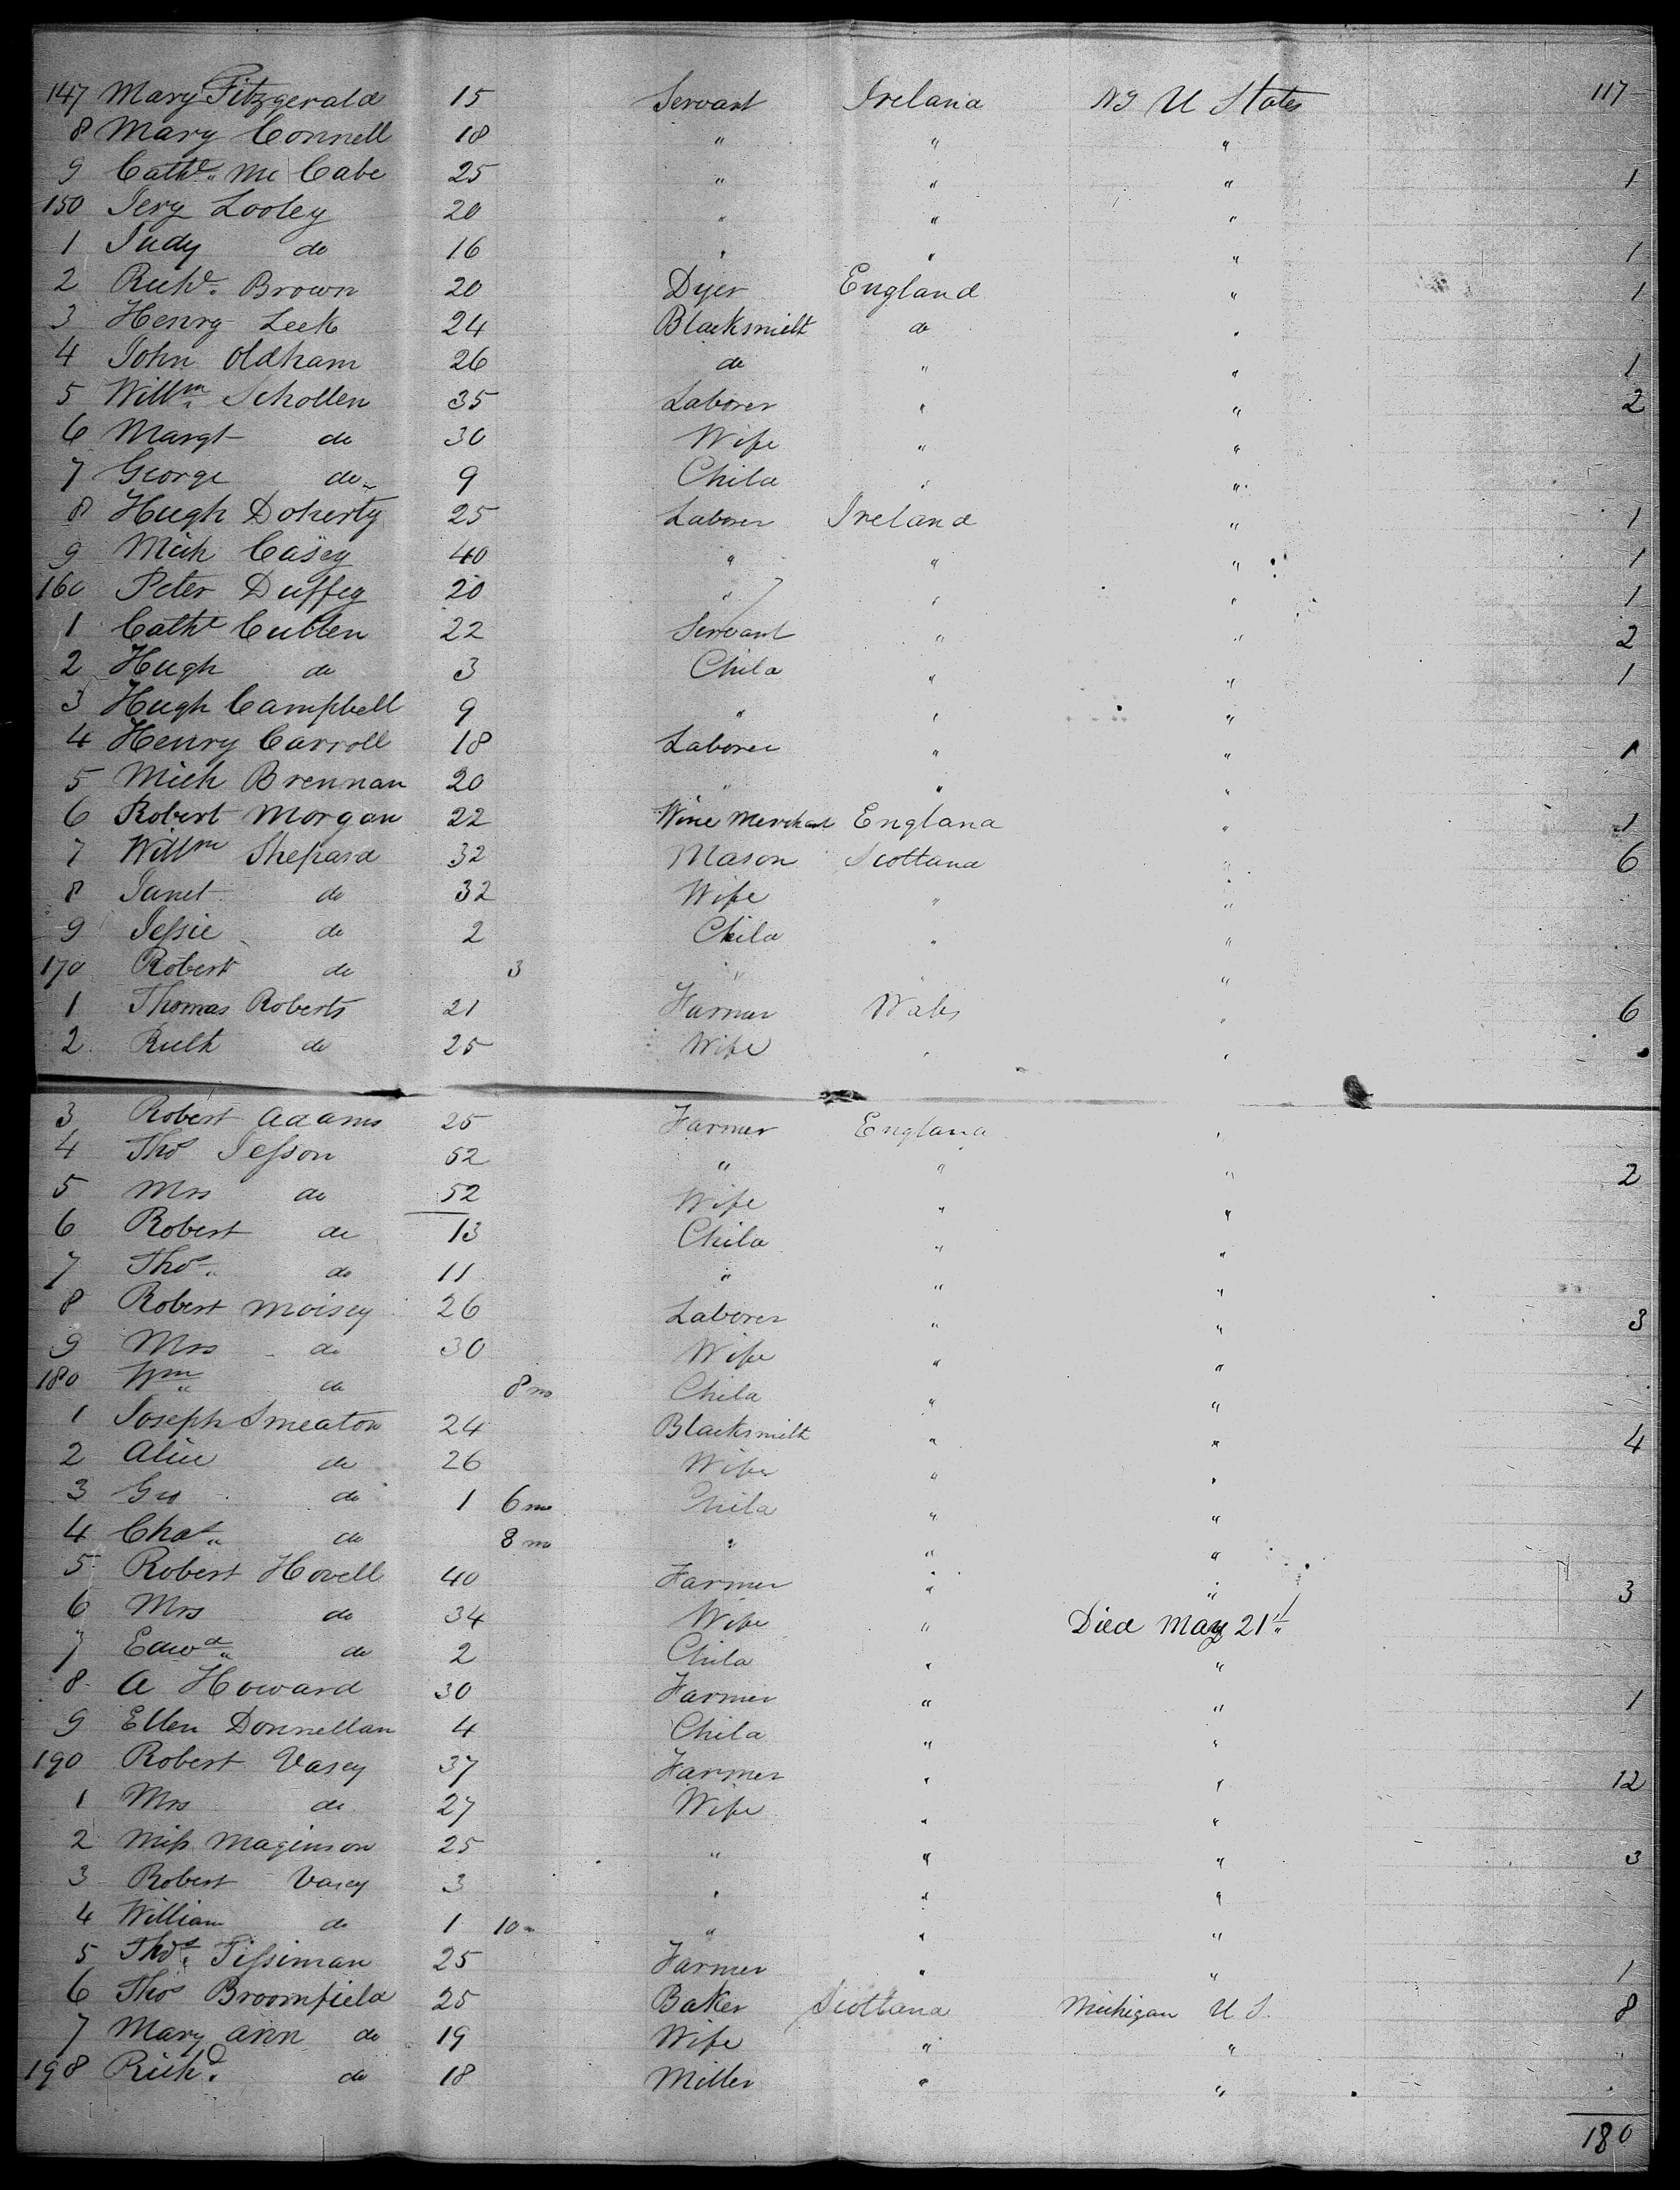 147 Mary Fitzgerald 15 Servant Ireland NY U States 117
8 Mary Connell 18 " " "
9 Cathe. Mc Cabe 25 " " " 1
150 Jery Looley 20 " " "
1 Judy do 16 " " " 1
2 Richd. Brown 20 Dyer England " 1
3 Henry Leek 24 Blacksmith do "
4 John Oldham 26 do " " 1
5 Willm Schollen 35 Laborer " " 2
6 Margt do 30 Wife " "
7 George do 9 Child " "
8 Hugh Doherty 25 Laborer Ireland " 1
9 Mich Casey 40 " " " 1
160 Peter Duffey 20 " " " 1
1 Cathe Cullen 22 Servant " " 2
2 Hugh do 3 Child " " 1
3 Hugh Campbell 9 " " "
4 Henry Carroll 18 Laborer " " 1
5 Mich Brennan 20 " " "
6 Robert Morgan 22 Wine Merchant England " 1
7 Willm Shepard 32 Mason Scotland " 6
8 Janet do 32 Wife " "
9 Jessie do 2 Child " "
170 Robert do 3 " " "
1 Thomas Roberts 21 Farmer Wales " 6
2 Ruth do 25 Wife " "
3 Robert Adams 25 Farmer England "
4 Thos Jesson 52 " " " 2
5 Mrs do 52 Wife " "
6 Robert do 13 Child " "
7 Thos. do 11 " " "
8 Robert Moisey 26 Laborer " " 3
9 Mrs do 30 Wife " "
180 Wm do 8 mo Child " "
1 Joseph Smeaton 24 Blacksmith " " 4
2 Alice do 26 Wife " "
3 Geo do 1 6 mo Child " "
4 Chas. do 8 mo " " "
5 Robert Hovell 40 Farmer " " 3
6 Mrs do 34 Wife " Died May 21st
7 Edwd. do 2 Child " "
8 A Howard 30 Farmer " " 1
9 Ellen Donnellan 4 Child " "
190 Robert Vasey 37 Farmer " " 12
1 Mrs do 27 Wife " "
2 Miss Maginson 25 " " " 3
3 Robert Vasey 3 " " "
4 William do 1 10 m " " "
5 Thos. Tissiman 25 Farmer " " 1
6 Thos Broomfield 25 Baker Scotland Michigan U S. 8
7 Mary Ann do 19 Wife " "
198 Richd. do 18 Miller " "
180